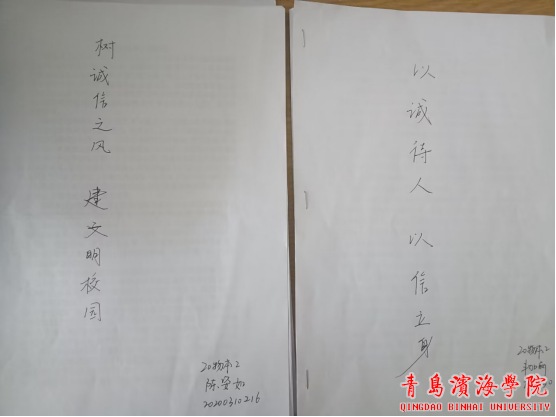 树诚信之风
建文明校园
20物本2
陈安如
20200310216
以诚待人
以信立身
20物本2
青島濱海學院
QINGDAO BINHAI UNIVERSITY